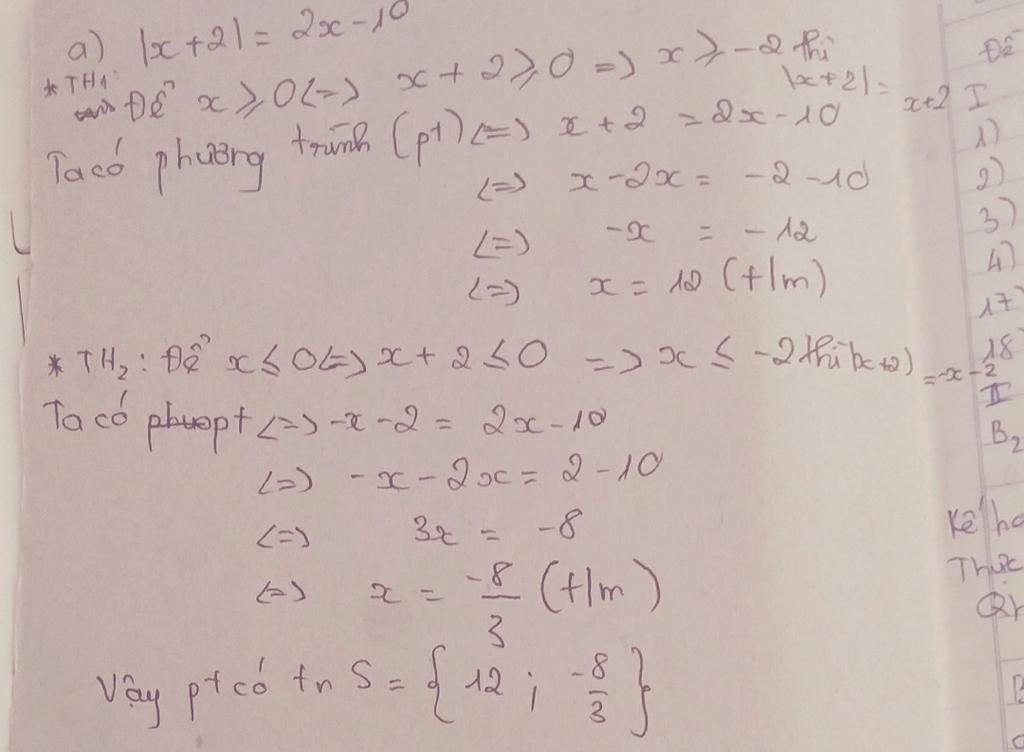 a) |x+2| = 2x-10
* TH1:
Để x ⩾ 0 <=> x + 2 ⩾ 0 => x ⩾ -2 thì |x+2| = x+2
Ta có phương trình (pt) <=> x + 2 = 2x - 10
<=> x - 2x = -2 - 10
<=> -x = -12
<=> x = 12 (t/m)
* TH2: Để x ≤ 0 <=> x + 2 ≤ 0 => x ≤ -2 thì |x+2| = -x-2
Ta có pt <=> -x - 2 = 2x - 10
<=> -x - 2x = 2 - 10
<=> 3x = -8
<=> x = -8/3 (t/m)
Vậy pt có tn S = { 12 ; -8/3 }
Đề
I
1)
2)
3)
4)
17
18
II
B2
Kế ho
Thực